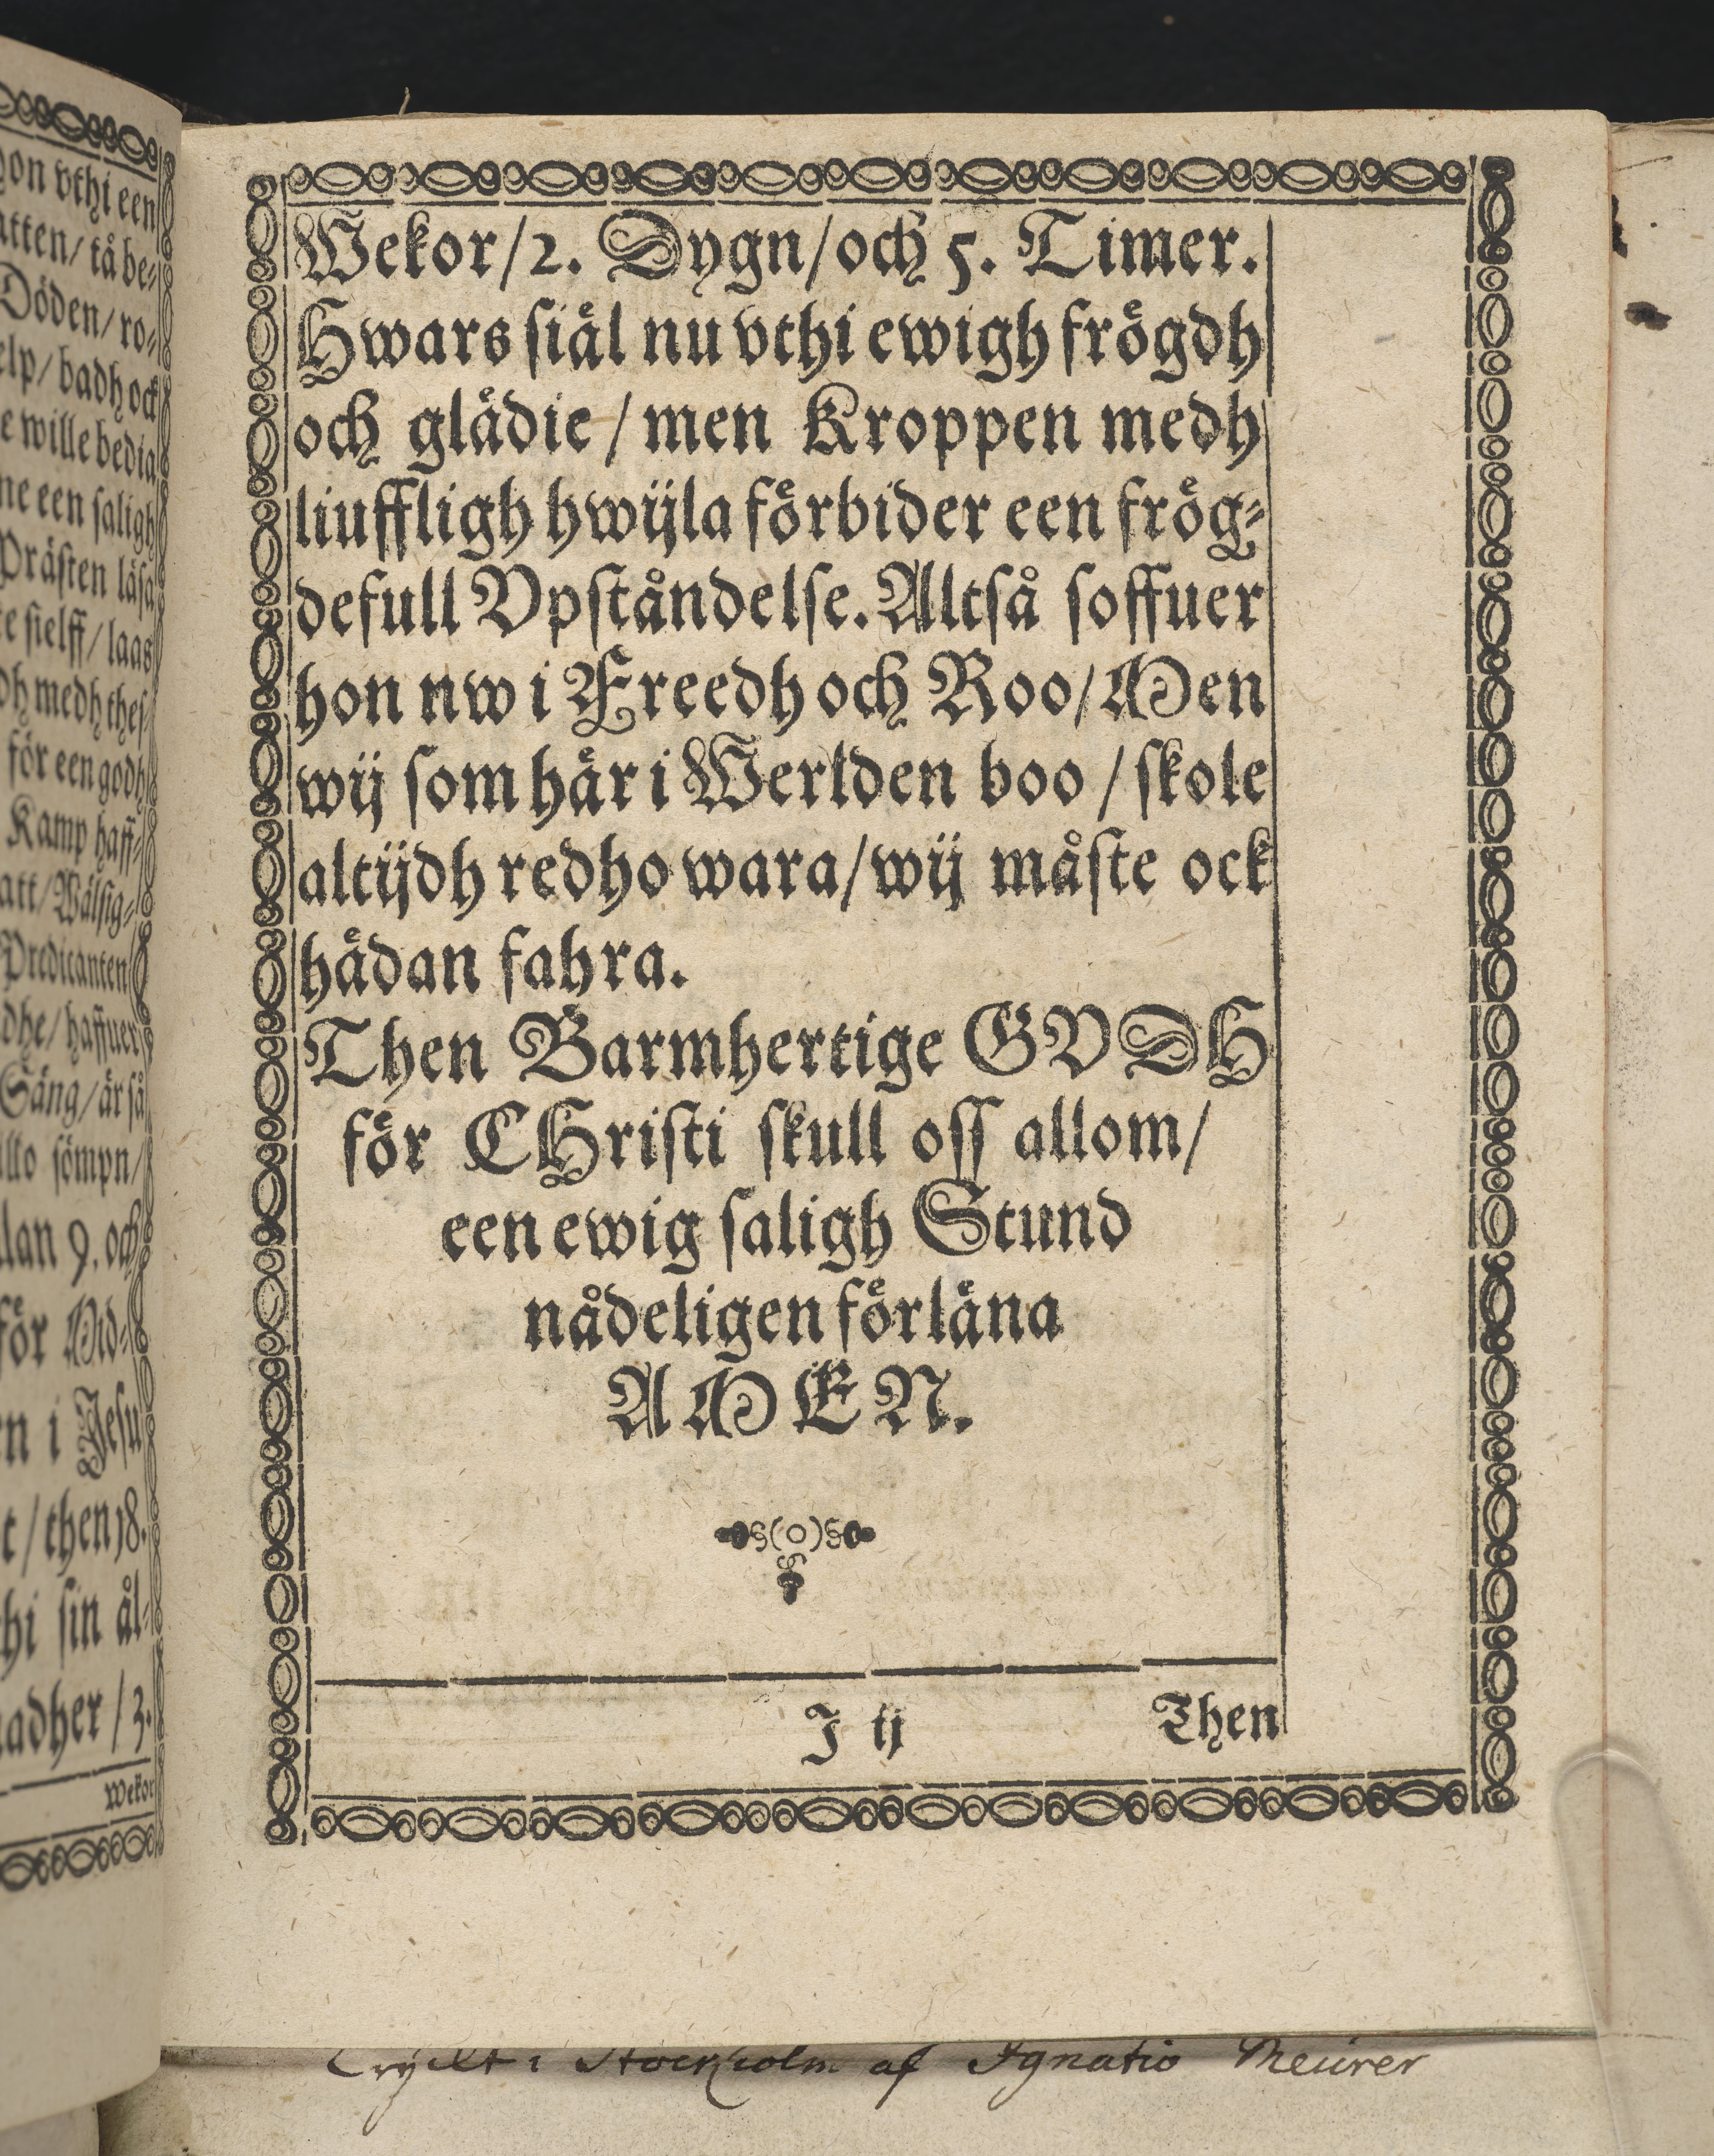 on vthi een
atten/ tå be⸗
Döden/ ro⸗
elp/ badh ock
e wille bedia
ne een saligh
Präſten läſa
ſielff/ laas
dh medh theſ⸗
för een godh
Kamp haff⸗
att/ Wälſig⸗
Predicanten
dhe/ haffuer
Säng/ är så
llo ſömpn/
lan 9. och
för Mid⸗
n i Jeſu
t / then 18.
hi ſin ål⸗
adher / 3.
Wekor
Wekor/2. Dygn/och 5. Timer.
Hwars ſiäl nu vthi ewigh frögdh
och glädie / men Kroppen medh
liuffligh hwijla förbider een frög⸗
defull Vpſtåndelſe. Altſå ſoffuer
hon nw i Freedh och Roo/ Men
wij ſom här i Werlden boo / ſkole
altijdh redho wara/ wij måſte ock
hädan fahra.
Then Barmhertige GVDH
för CHriſti ſkull oſſ allom/
een ewig ſaligh Stund
nådeligen förläna
AMEN.
J ij Then
Tryckt i Stockholm af Ignatio Meurer